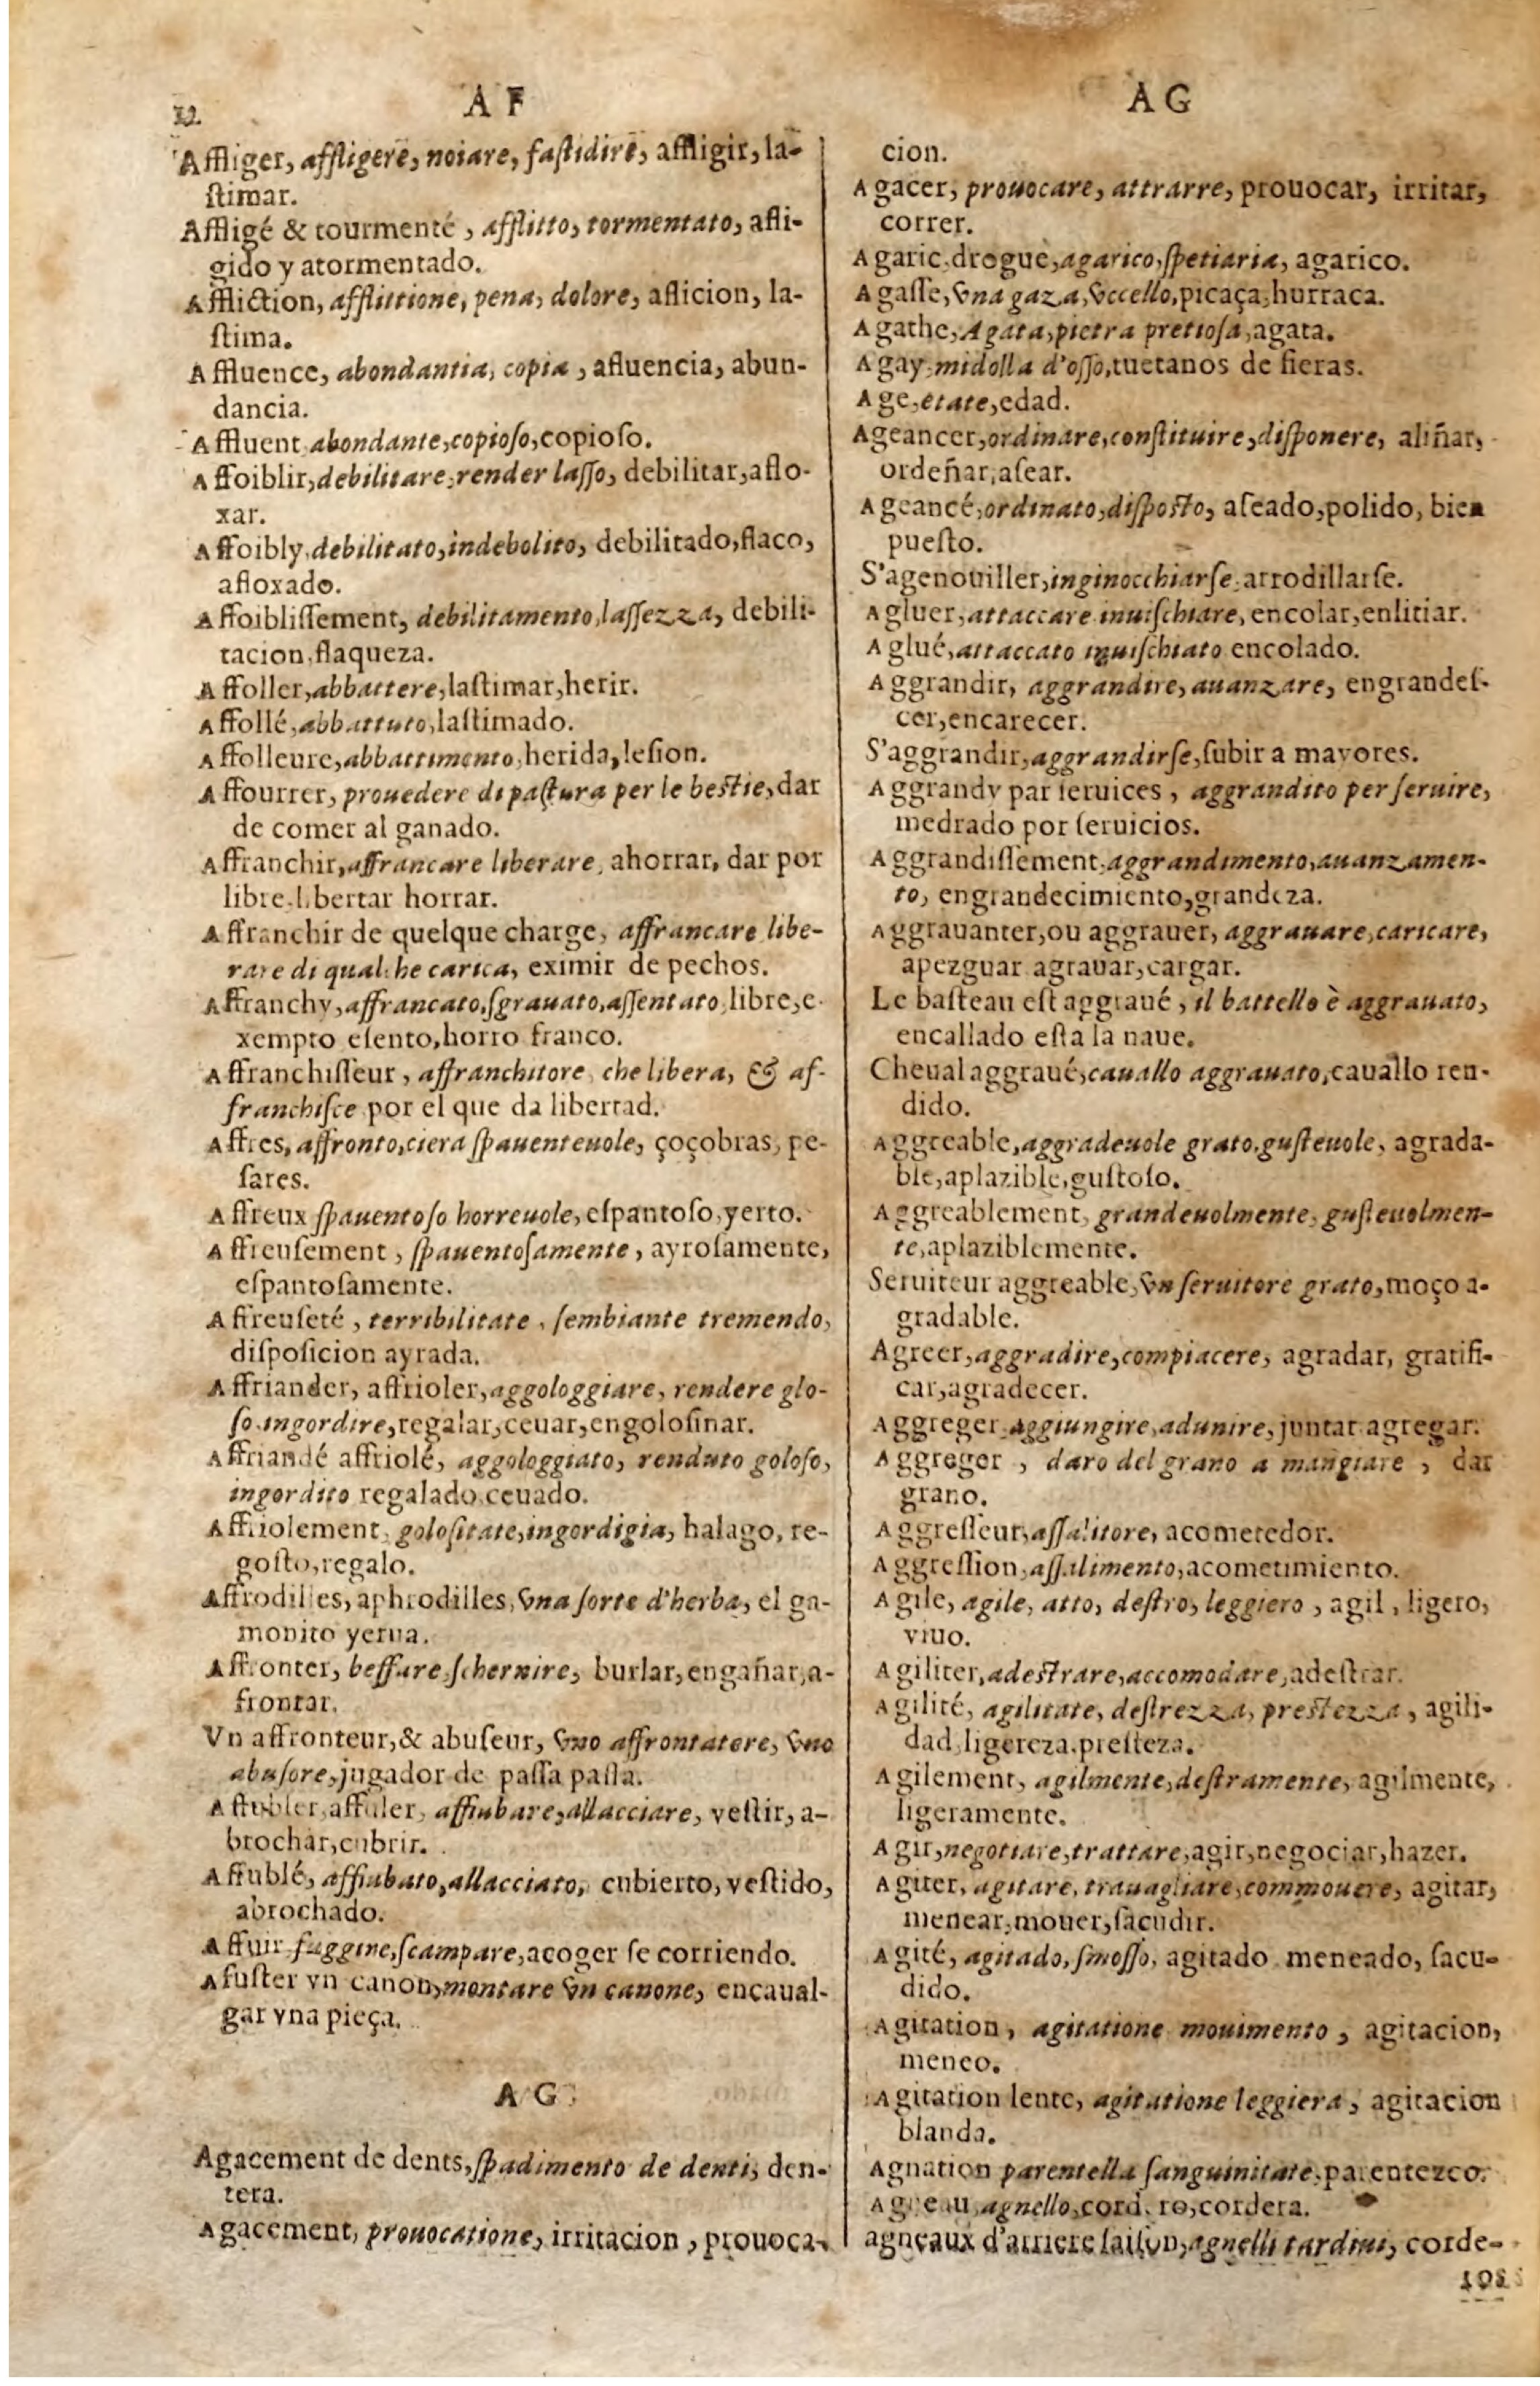 12 A F
Affliger, affligere, noiare, faſtidire, affligir, la-
ſtimar.
Affligé & tourmenté, afflitto, tormentato, afli-
gido y atormentado.
Affliction, afflittione, pena, dolore, aflicion, la-
ſtima.
Affluence, abondantia, copia, afluencia, abun-
dancia.
Affluent abondante, copioſo, copioſo.
Affoiblir, debilitare, render laſſo, debilitar, aflo-
xar.
Affoibly, debilitato, indebolito, debilitado, flaco,
afloxado.
Affoibliſſement, debilitamento, laſſezza, debili-
tacion, flaqueza.
Affoller, abbattere, laſtimar, herir.
Affollé, abbattuto, laſtimado.
Affolleure, abbattimento, herida, leſion.
Affourrer, prouedere di paſtura per le beſtie, dar
de comer al ganado.
Affranchir, affrancare liberare, ahorrar, dar por
libre, libertar horrar.
Affranchir de quelque charge, affrancare libe-
rare di qualche carica, eximir de pechos.
Affranchy, affrancato, ſgrauato, aſſentato, libre, e-
xempto eſento, horro franco.
Affranchiſſeur, affranchitore che libera, & af-
franchiſce por el que da libertad.
Affres, affronto, ciera ſpauenteuole, çoçobras, pe-
ſares.
Affreux ſpauentoſo horreuole, eſpantoſo, yerto.
Affreuſement, ſpauentoſamente, ayroſamente,
eſpantoſamente.
Affreuſeté, terribilitate, ſembiante tremendo,
diſpoſicion ayrada.
Affriander, affrioler, aggologgiare, rendere glo-
ſo ingordire, regalar, ceuar, engoloſinar.
Affriandé affriolé, aggologgiato, renduto goloſo,
ingordito regalado, ceuado.
Affriolement, goloſitate, ingordigia, halago, re-
goſto, regalo.
Affrodilles, aphrodilles, vna ſorte d'herba, el ga-
monito yerua.
Affronter, beffare, ſchernire, burlar, engañar, a-
frontar.
Vn affronteur, & abuſeur, vno affrontatore, vno
abuſore, jugador de paſſa paſſa.
Affubler, affuler, affiubare, allacciare, veſtir, a-
brochar, cubrir.
Affublé, affiubato, allacciato, cubierto, veſtido,
abrochado.
Affuir fuggire, ſcampare, acoger ſe corriendo.
Afuſter vn canon, montare vn canone, encaual-
gar vna pieça.
A G
Agacement de dents, ſpadimento de denti, den-
tera.
Agacement, prouocatione, irritacion, prouoca-
A G
cion.
Agacer, prouocare, attrarre, prouocar, irritar,
correr.
Agaric, drogue, agarico, ſpetiaria, agarico.
Agaſſe, vna gaza, vccello, picaça, hurraca.
Agathe, Agata, pietra pretioſa, agata.
Agay, midolla d'oſſo, tuetanos de fieras.
Age, etate, edad.
Ageancer, ordinare, conſtituire, diſponere, aliñar,
ordeñar, aſear.
Ageancé, ordinato, diſpoſto, aſeado, polido, bien
pueſto.
S'agenouiller, inginocchiarſe, arrodillarſe.
Agluer, attaccare inuiſchiare, encolar, enlitiar.
Aglué, attaccato inuiſchiato encolado.
Aggrandir, aggrandire, auanzare, engrandeſ-
cer, encarecer.
S'aggrandir, aggrandirſe, ſubir a mayores.
Aggrandy par ſeruices, aggrandito per ſeruire,
medrado por ſeruicios.
Aggrandiſſement, aggrandimento, auanzamen-
to, engrandecimiento, grandeza.
Aggrauanter, ou aggrauer, aggrauare, caricare,
apezguar agrauar, cargar.
Le baſteau eſt aggraué, il battello è aggrauato,
encallado eſta la naue.
Cheual aggraué, cauallo aggrauato, cauallo ren-
dido.
Aggreable, aggradeuole grato, guſteuole, agrada-
ble, aplazible, guſtoſo.
Aggreablement, grandeuolmente, guſteuolmen-
te, aplaziblemente.
Seruiteur aggreable, vn ſeruitore grato, moço a-
gradable.
Agreer, aggradire, compiacere, agradar, gratifi-
car, agradecer.
Aggreger, aggiungire, adunire, juntar agregar.
Aggreger, daro del grano a mangiare, dar
grano.
Aggreſſeur, aſſalitore, acometedor.
Aggreſſion, aſſalimento, acometimiento.
Agile, agile, atto, deſtro, leggiero, agil, ligero,
viuo.
Agiliter, adeſtrare, accomodare, adeſtrar.
Agilité, agilitate, deſtrezza, preſtezza, agili-
dad, ligereza, preſteza.
Agilement, agilmente, deſtramente, agilmente,
ligeramente.
Agir, negotiare, trattare, agir, negociar, hazer.
Agiter, agitare, trauagliare, commouere, agitar,
menear, mouer, ſacudir.
Agité, agitado, ſmoſſo, agitado meneado, ſacu-
dido.
Agitation, agitatione mouimento, agitacion,
meneo.
Agitation lente, agitatione leggiera, agitacion
blanda.
Agnation parentella ſanguinitate, parentezco.
Agneau, agnello, cordero, cordera.
agneaux d'arriere ſaiſon, agnelli tardiui, corde-
ros